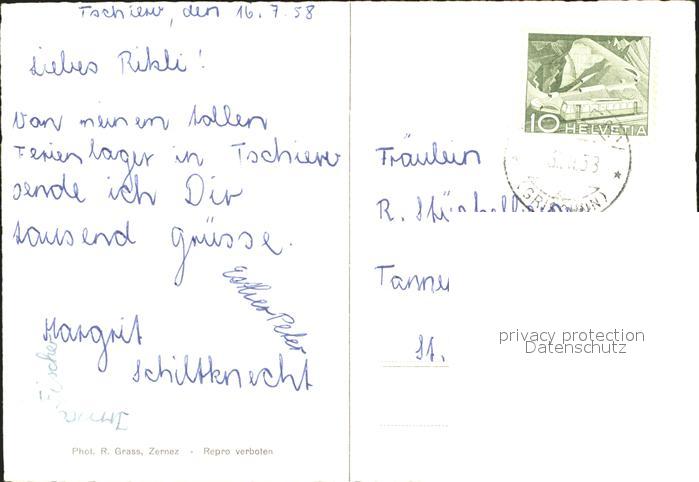 Tschierv, den 16.7.58
Liebes Rikli!
Von meinem tollen
Ferienlager in Tschierv
sende ich Dir
tausend Grüsse.
Esther Peter
Margrit
Schiltknecht
Irma Fischer
Phot. R. Grass, Zernez - Repro verboten
10 HELVETIA
(GRISCHUN)
Fräulein
R.
Tanne
St.
privacy protection
Datenschutz